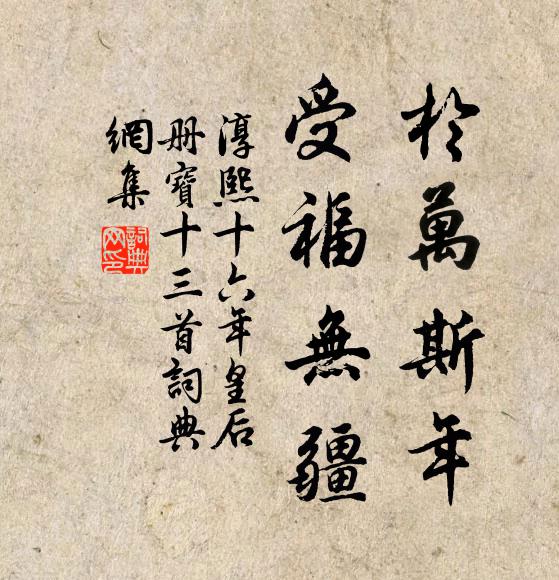 於萬斯年
受福無疆
淳熙十六年皇后
册寶十三首詞典
網集
詞典網印